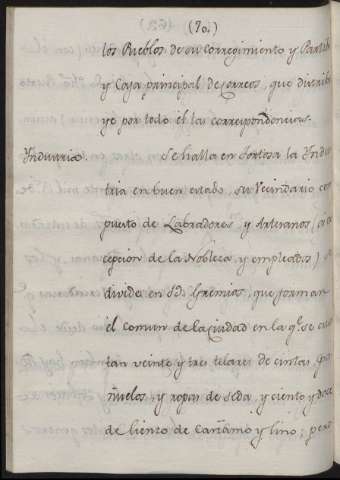 (70.)
los Pueblos de su Corregimiento y Partido
y Caja principal de Correos, que distribu
ye por todo él las correspondencias.
Yndustria. Se halla en Tortosa la Yndus
tria en buen estado, su Vecindario com
puesto de Labradores, y Artesanos (a ex
cepcion de la Nobleza, y empleados) se
divide en Gremios, que forman
el comun de la Ciudad en la qe. se cuen
tan veinte y tres telares de cintas, pa
ñuelos, y ropas de seda, y ciento y doce
de liento de Cañamo y lino; pero